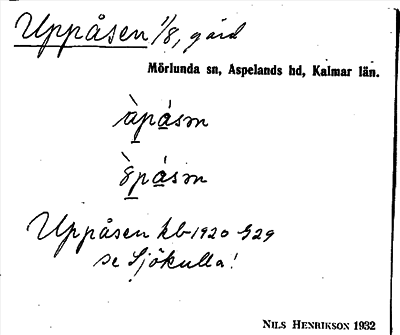 Uppåsen 1/8, gård
Mörlunda sn, Aspelands hd, Kalmar län.
àpásm
Uppåsen kb 1920
se Sjökulla!
NILS HENRIKSON 1932